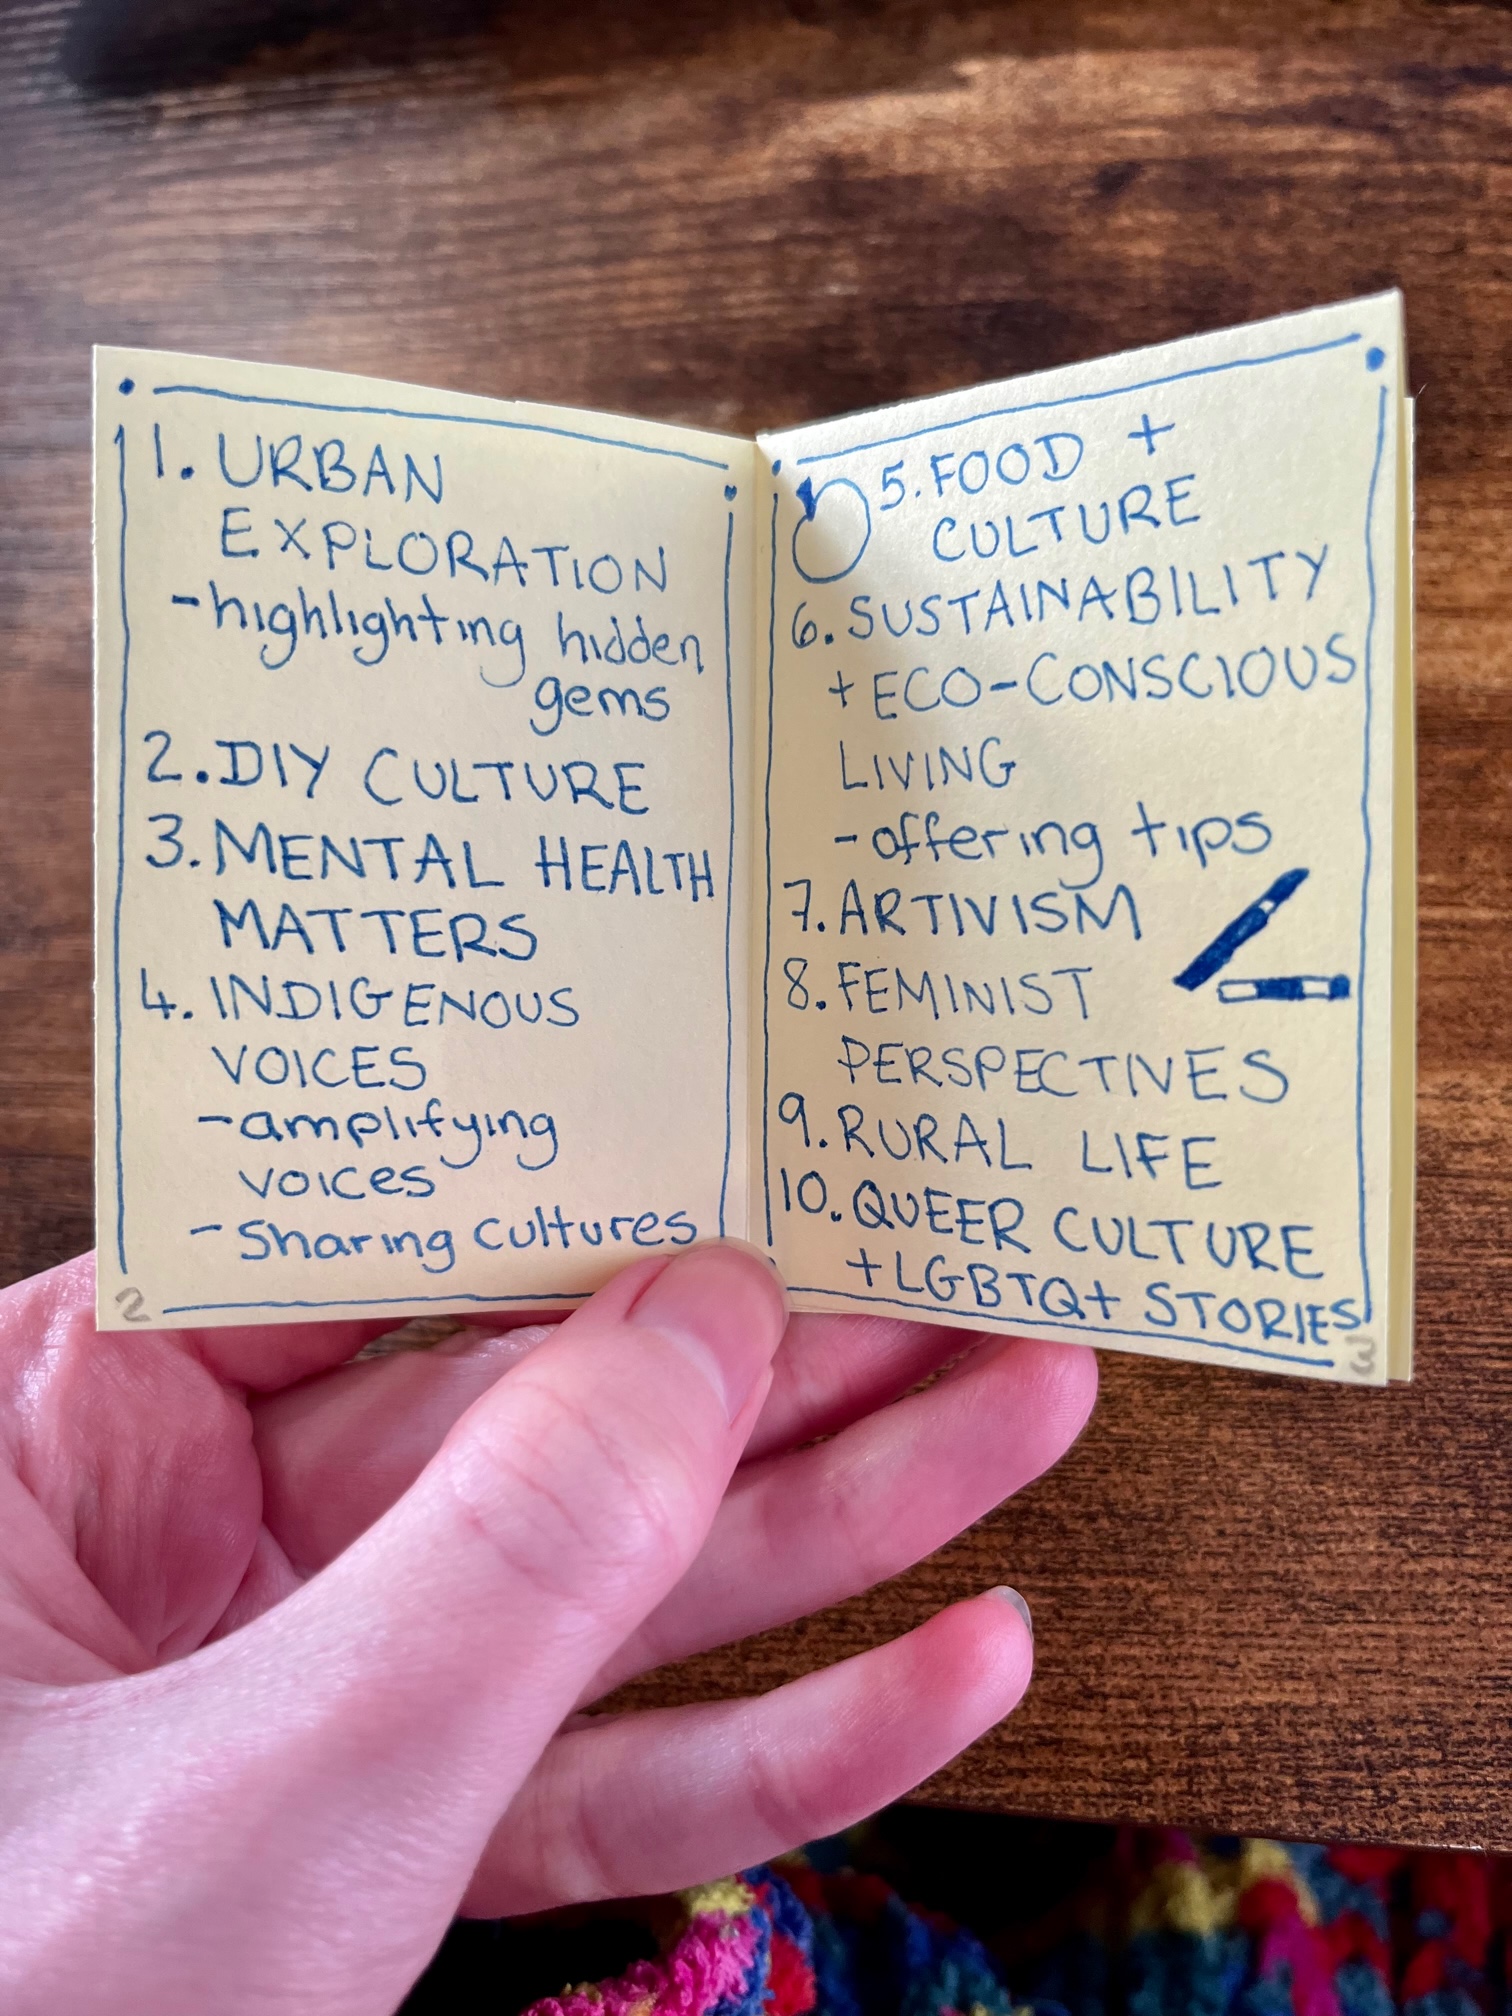 1. URBAN
EXPLORATION
-highlighting hidden
gems
2. DIY CULTURE
3. MENTAL HEALTH
MATTERS
4. INDIGENOUS
VOICES
-amplifying
voices
-sharing cultures
2
5. FOOD +
CULTURE
6. SUSTAINABILITY
+ ECO-CONSCIOUS
LIVING
-offering tips
7. ARTIVISM
8. FEMINIST
PERSPECTIVES
9. RURAL LIFE
10. QUEER CULTURE
+ LGBTQ+ STORIES
3